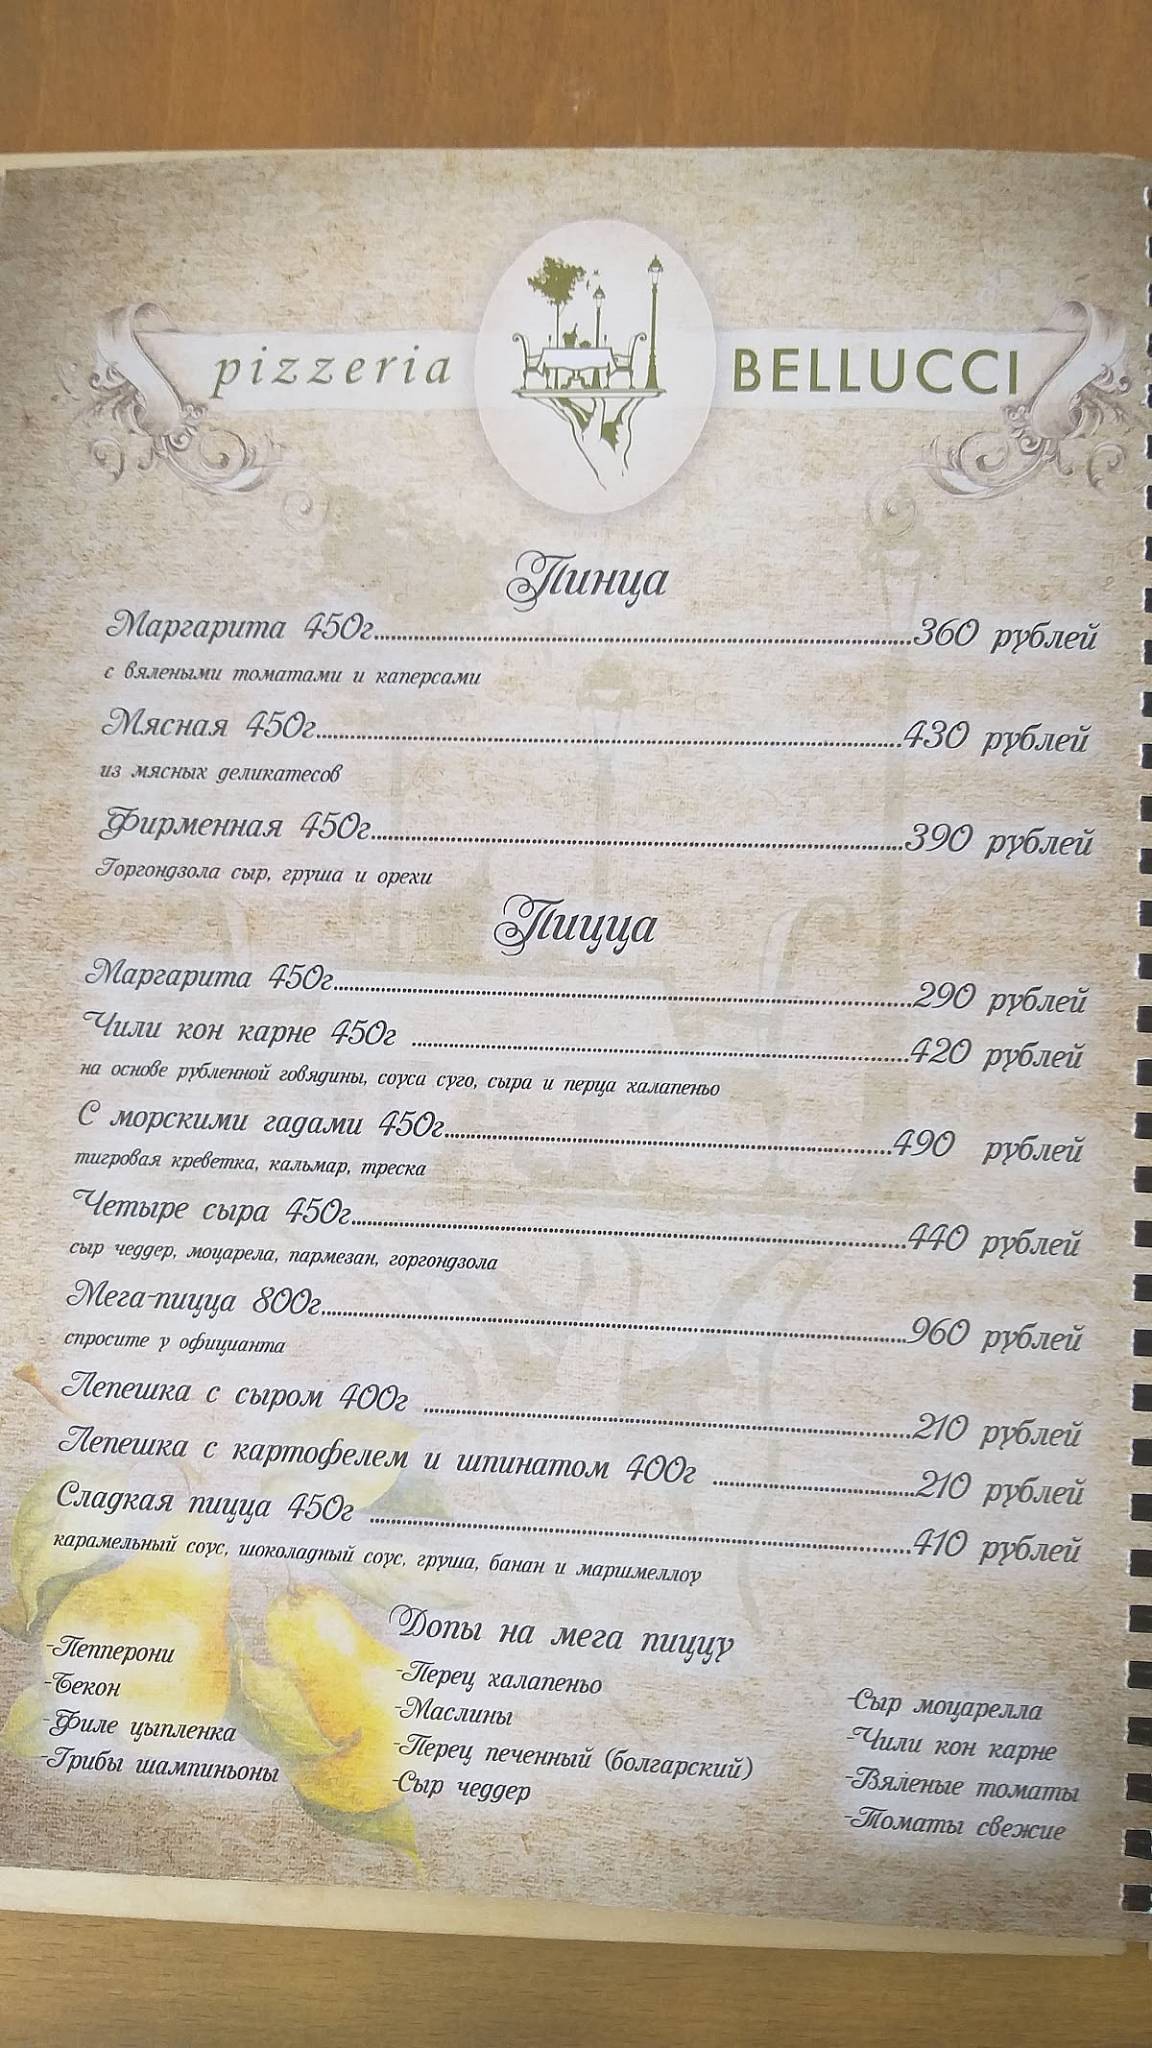 pizzeria BELLUCCI
Пинца
Маргарита 450г......360 рублей
с вялеными томатами и каперсами
Мясная 450г......430 рублей
из мясных деликатесов
Фирменная 450г......390 рублей
Горгондзола сыр, груша и орехи
Пицца
Маргарита 450г......290 рублей
Чили кон карне 450г ......420 рублей
на основе рубленной говядины, соуса суго, сыра и перца халапеньо
С морскими гадами 450г......490 рублей
тигровая креветка, кальмар, треска
Четыре сыра 450г......440 рублей
сыр чеддер, моцарела, пармезан, горгондзола
Мега-пицца 800г......960 рублей
спросите у официанта
Лепешка с сыром 400г ......210 рублей
Лепешка с картофелем и шпинатом 400г ......210 рублей
Сладкая пицца 450г ......410 рублей
карамельный соус, шоколадный соус, груша, банан и маршмеллоу
Допы на мега пиццу
-Пепперони
-Бекон
-Филе цыпленка
-Грибы шампиньоны
-Перец халапеньо
-Маслины
-Перец печенный (болгарский)
-Сыр чеддер
-Сыр моцарелла
-Чили кон карне
-Вяленые томаты
-Томаты свежие